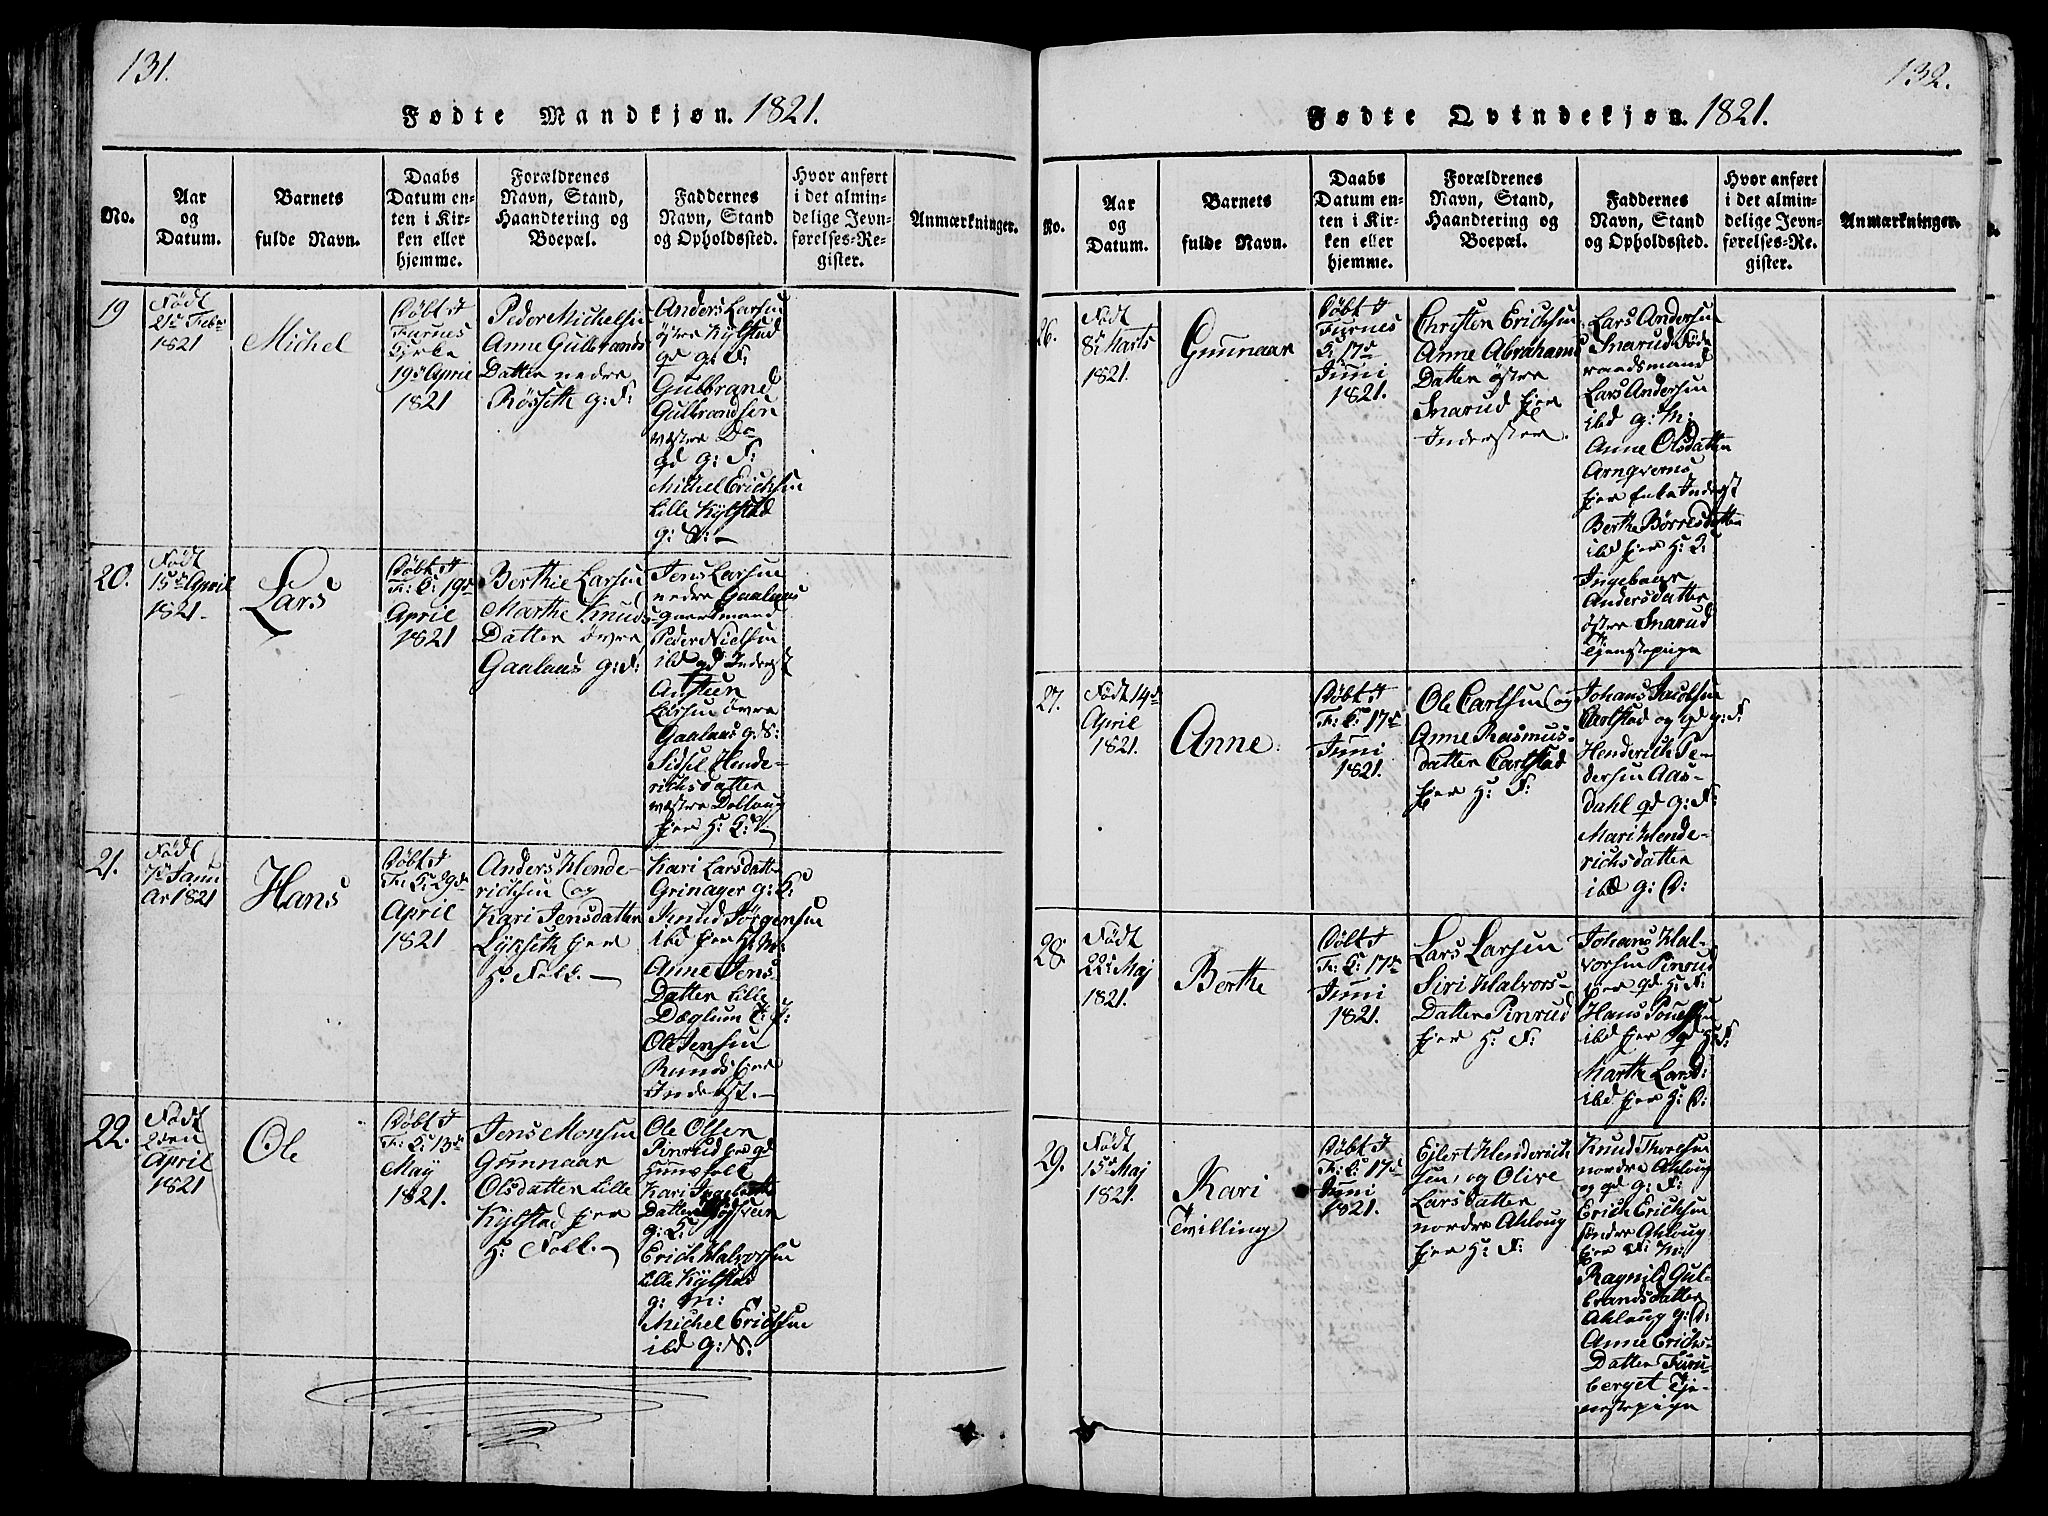 131.
Fødte Mandkjøn. 1821.
No.
Aar
og
Datum.
Barnets
fulde Navn.
Daabs
Datum en-
ten i Kir-
ken eller
hjemme.
Forældrenes
Navn, Stand,
Haandtering og
Boepæl.
Faddernes
Navn, Stand
og Opholdssted.
Hvor anført
i det almin-
delige Jevn-
førelses-Re-
gister.
Anmærkninger.
19
Født
21de Febr
1821
Michel
Døbt I
Furnes
Kirke
19de April
1821
Peder Michelsen
Anne Gulbrands
Datter nedre
Røsseth g: F:
Anders Larsen
østre Kylstad
gd g: F:
Gulbrand
Gulbrandsen
vestre Do
gd g: F:
Michel Erichsen
Lille Kylstad
g: S:
20.
Født
15de April
1821.
Lars
Døbt I
F: K: 19de
April
1821
Berthie Larsen
Marthe Knuds
Datter øvre
Gaalaas g: F:
Jens Larsen
nedre Gaalaas
gaardmand
Peder Nielsen
ibd gd Inderst
Larsen øvre
Gaalaas g: S:
Sidsil Hende-
richsdatter
vestre Dolloug
Ejer H: K:
21.
Født
7de Janu
Ar 1821
Hans
Døbt I
F: K: 29de
April
1821
Anders Hende-
richsen og
Kari Jensdatter
Lykseth Ejer
H: Folk.
Kari Larsdatt
Grinager g: K:
Knud Jørgensen
ibd Ejer H: M:
Anne Jens
Datter Lille
Dæglum
Ole Jensen
Runds Ejer
Inderst.
22.
Født
2den
April
1821
Ole
Døbt I
F: K: 13de
May
1821.
Jens Monsen
Gunnaar
Olsdatter Lille
Kylstad Ejer
H: Folk.
Ole Olsen
Pinrud Ejer gd
Huusfolk
Kari
Datter
g: K:
Erich Halvorsen
Lille Kylstad
g: M:
Michel Erichsen
ibd g: S:
132.
Fødte Qvindekjøn. 1821.
No.
Aar
og
Datum.
Barnets
fulde Navn.
Daabs
Datum en-
ten i Kir-
ken eller
hjemme.
Forældrenes
Navn, Stand,
Haandtering og
Boepæl.
Faddernes
Navn, Stand
og Opholdssted.
Hvor anført
i det almin-
delige Jevn-
førelses-Re-
gister.
Anmærkninger.
26.
Født
8de Marts
1821.
Gunnaar
Døbt I
Furnes
K: 17de
Juni
1821.
Christen Erichsen
Anne Abrahams
Datter østre
Snarud Ejer
Inderster.
Lars Andersen
Snarud Føde
raadsmand
Lars Andersen
ibd g: M:
Anne Olsdatter
Arnqverns
Ejer Enke Inderst
Berthe Børresdatter
ibd Ejer H: K:
Ingebaar
Andersdatter
østre Snarud
Tjenstepige
27.
Født 14de
April
1821.
Anne.
Døbt I
F: K: 17de
Juni
1821.
Ole Carlsen og
Anne Rasmus-
datter Carlstad
Ejer H: F:
Johans Jacobsen
Carlstad og gd g: F:
Henderich Pe-
dersen Aas-
dahl gd g: F:
Mari Hende-
richsdatter
ibd g: D:
28.
Født
22de Maj
1821.
Berthe
Døbt I
F: K: 17de
Juni
1821.
Lars Larsen
Siri Halvors-
Datter Pinrud
Ejer H: F:
Johans Hal-
vorsen Pinrud
Ejer gd H: F:
Hans Poulsen
ibd Ejer gd H: F:
Marthe Larsd:
ibd Ejer H: D:
29.
Født
15de Maj
1821.
Kari
Tvilling
Døbt I
F: K: 17de
Juni
1821.
Ejlert Henderich
sen, og Olive
Larsdatter
nordre Ahloug
Ejer H: F:
Knud Thorsen
nordre Ahloug
og gd g: F:
Erich Erichsen
søndre Ahloug
Ejer F: M:
Ragnild Gul-
brandsdatter
Ahloug g: D:
Anne Erichs-
Datter Furu-
berget Tje-
nstepige